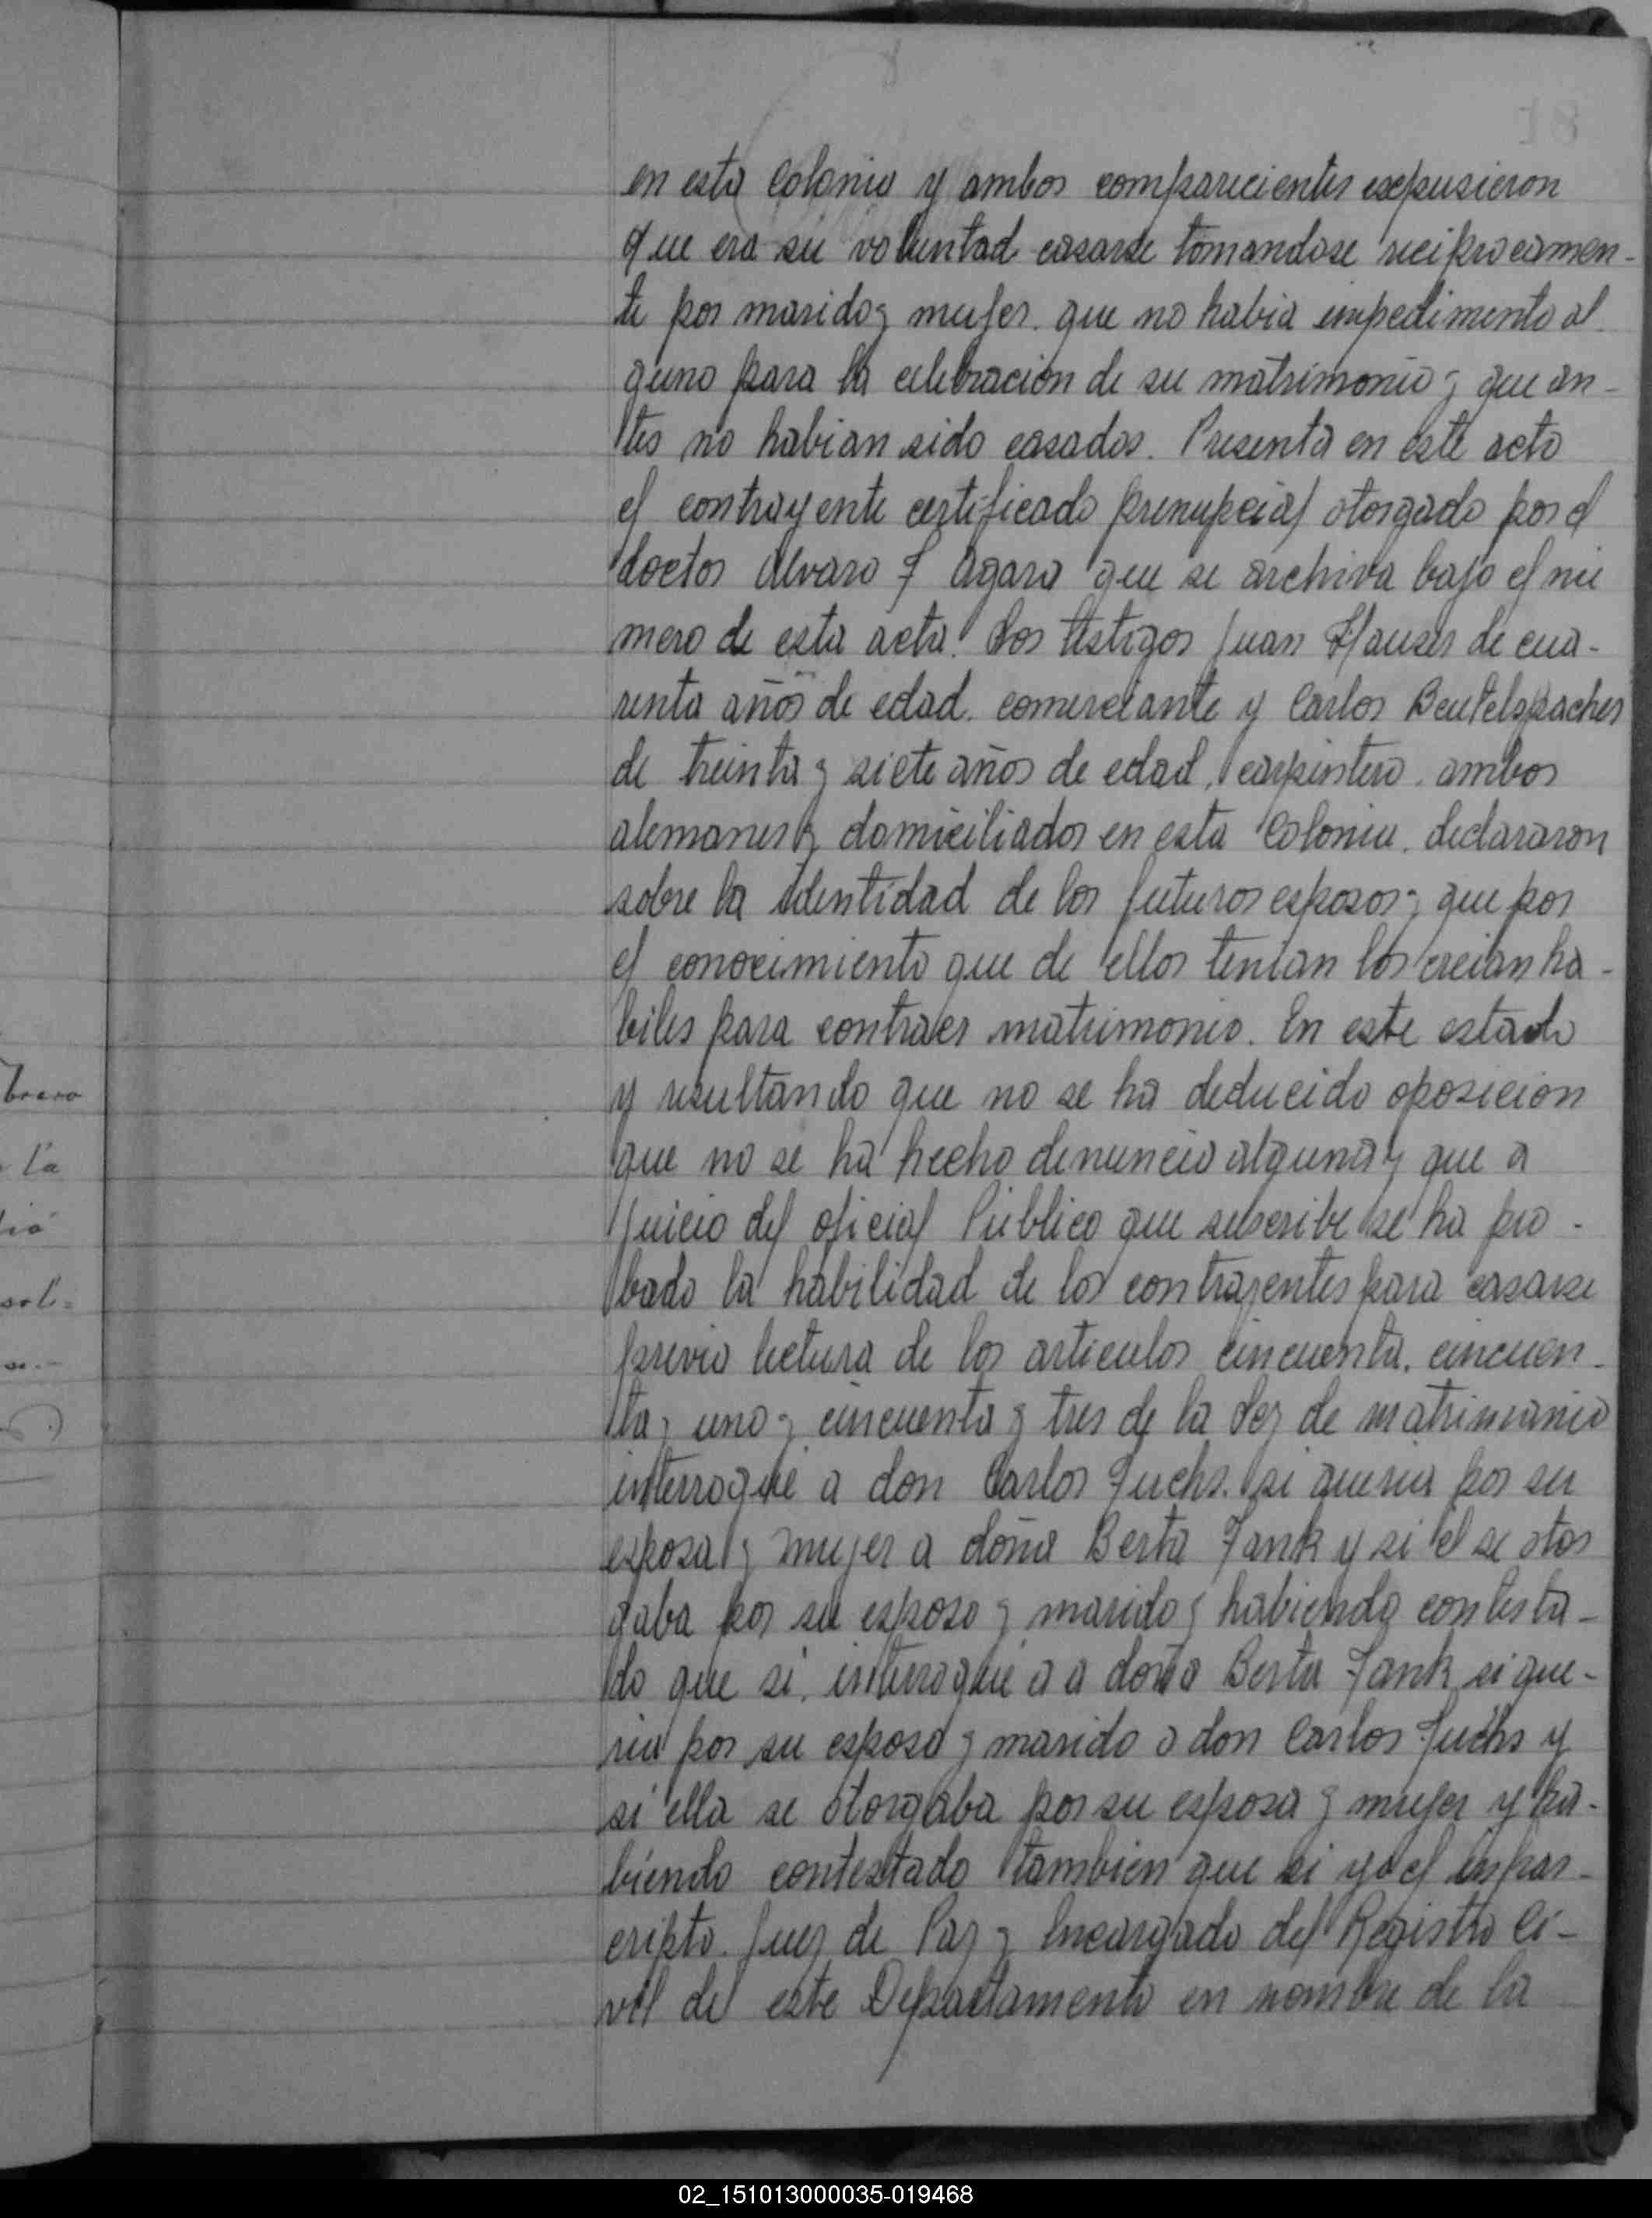 en esta Colonia y ambos comparecientes expusieron
que era su voluntad casarse tomandose reciprocamen-
te por marido y mujer. que no habia impedimento al
guno para la celebracion de su matrimonio y que an-
tes no habian sido casados. Presenta en este acto
el contrayente certificado prenupcial otorgado por el
doctor Alvaro F Agara que se archiva bajo el nú
mero de esta acta. Los testigos Juan Hauser de cua-
renta años de edad. comerciante y Carlos Beutelspacher
de treinta y siete años de edad, carpintero. ambos
alemanes y domiciliados en esta Colonia. declararon
sobre la identidad de los futuros esposos y que por
el conocimiento que de ellos tenian los creian ha-
biles para contraer matrimonio. En este estado
y resultando que no se ha deducido oposicion
que no se ha hecho denuncia alguna y que a
juicio del oficial Público que suscribe se ha pro-
bado la habilidad de los contrayentes para casarse
previa lectura de los articulos cincuenta. cincuen-
ta y uno y cincuenta y tres de la Ley de matrimonio
interrogué a don Carlos Fuchs. si queria por su
esposa y mujer a doña Berta Fank y si él se otor
gaba por su esposo y marido y habiendo contesta-
do que si. interrogué a a doña Berta Fank si que-
ria por su esposo y marido a don Carlos Fuchs y
si ella se otorgaba por su esposa y mujer y ha-
biendo contestado tambien que si yo el infras-
cripto. Juez de Paz y Encargado del Registro Ci-
vil de este Departamento en nombre de la
brero
la
sol=
02_151013000035-019468